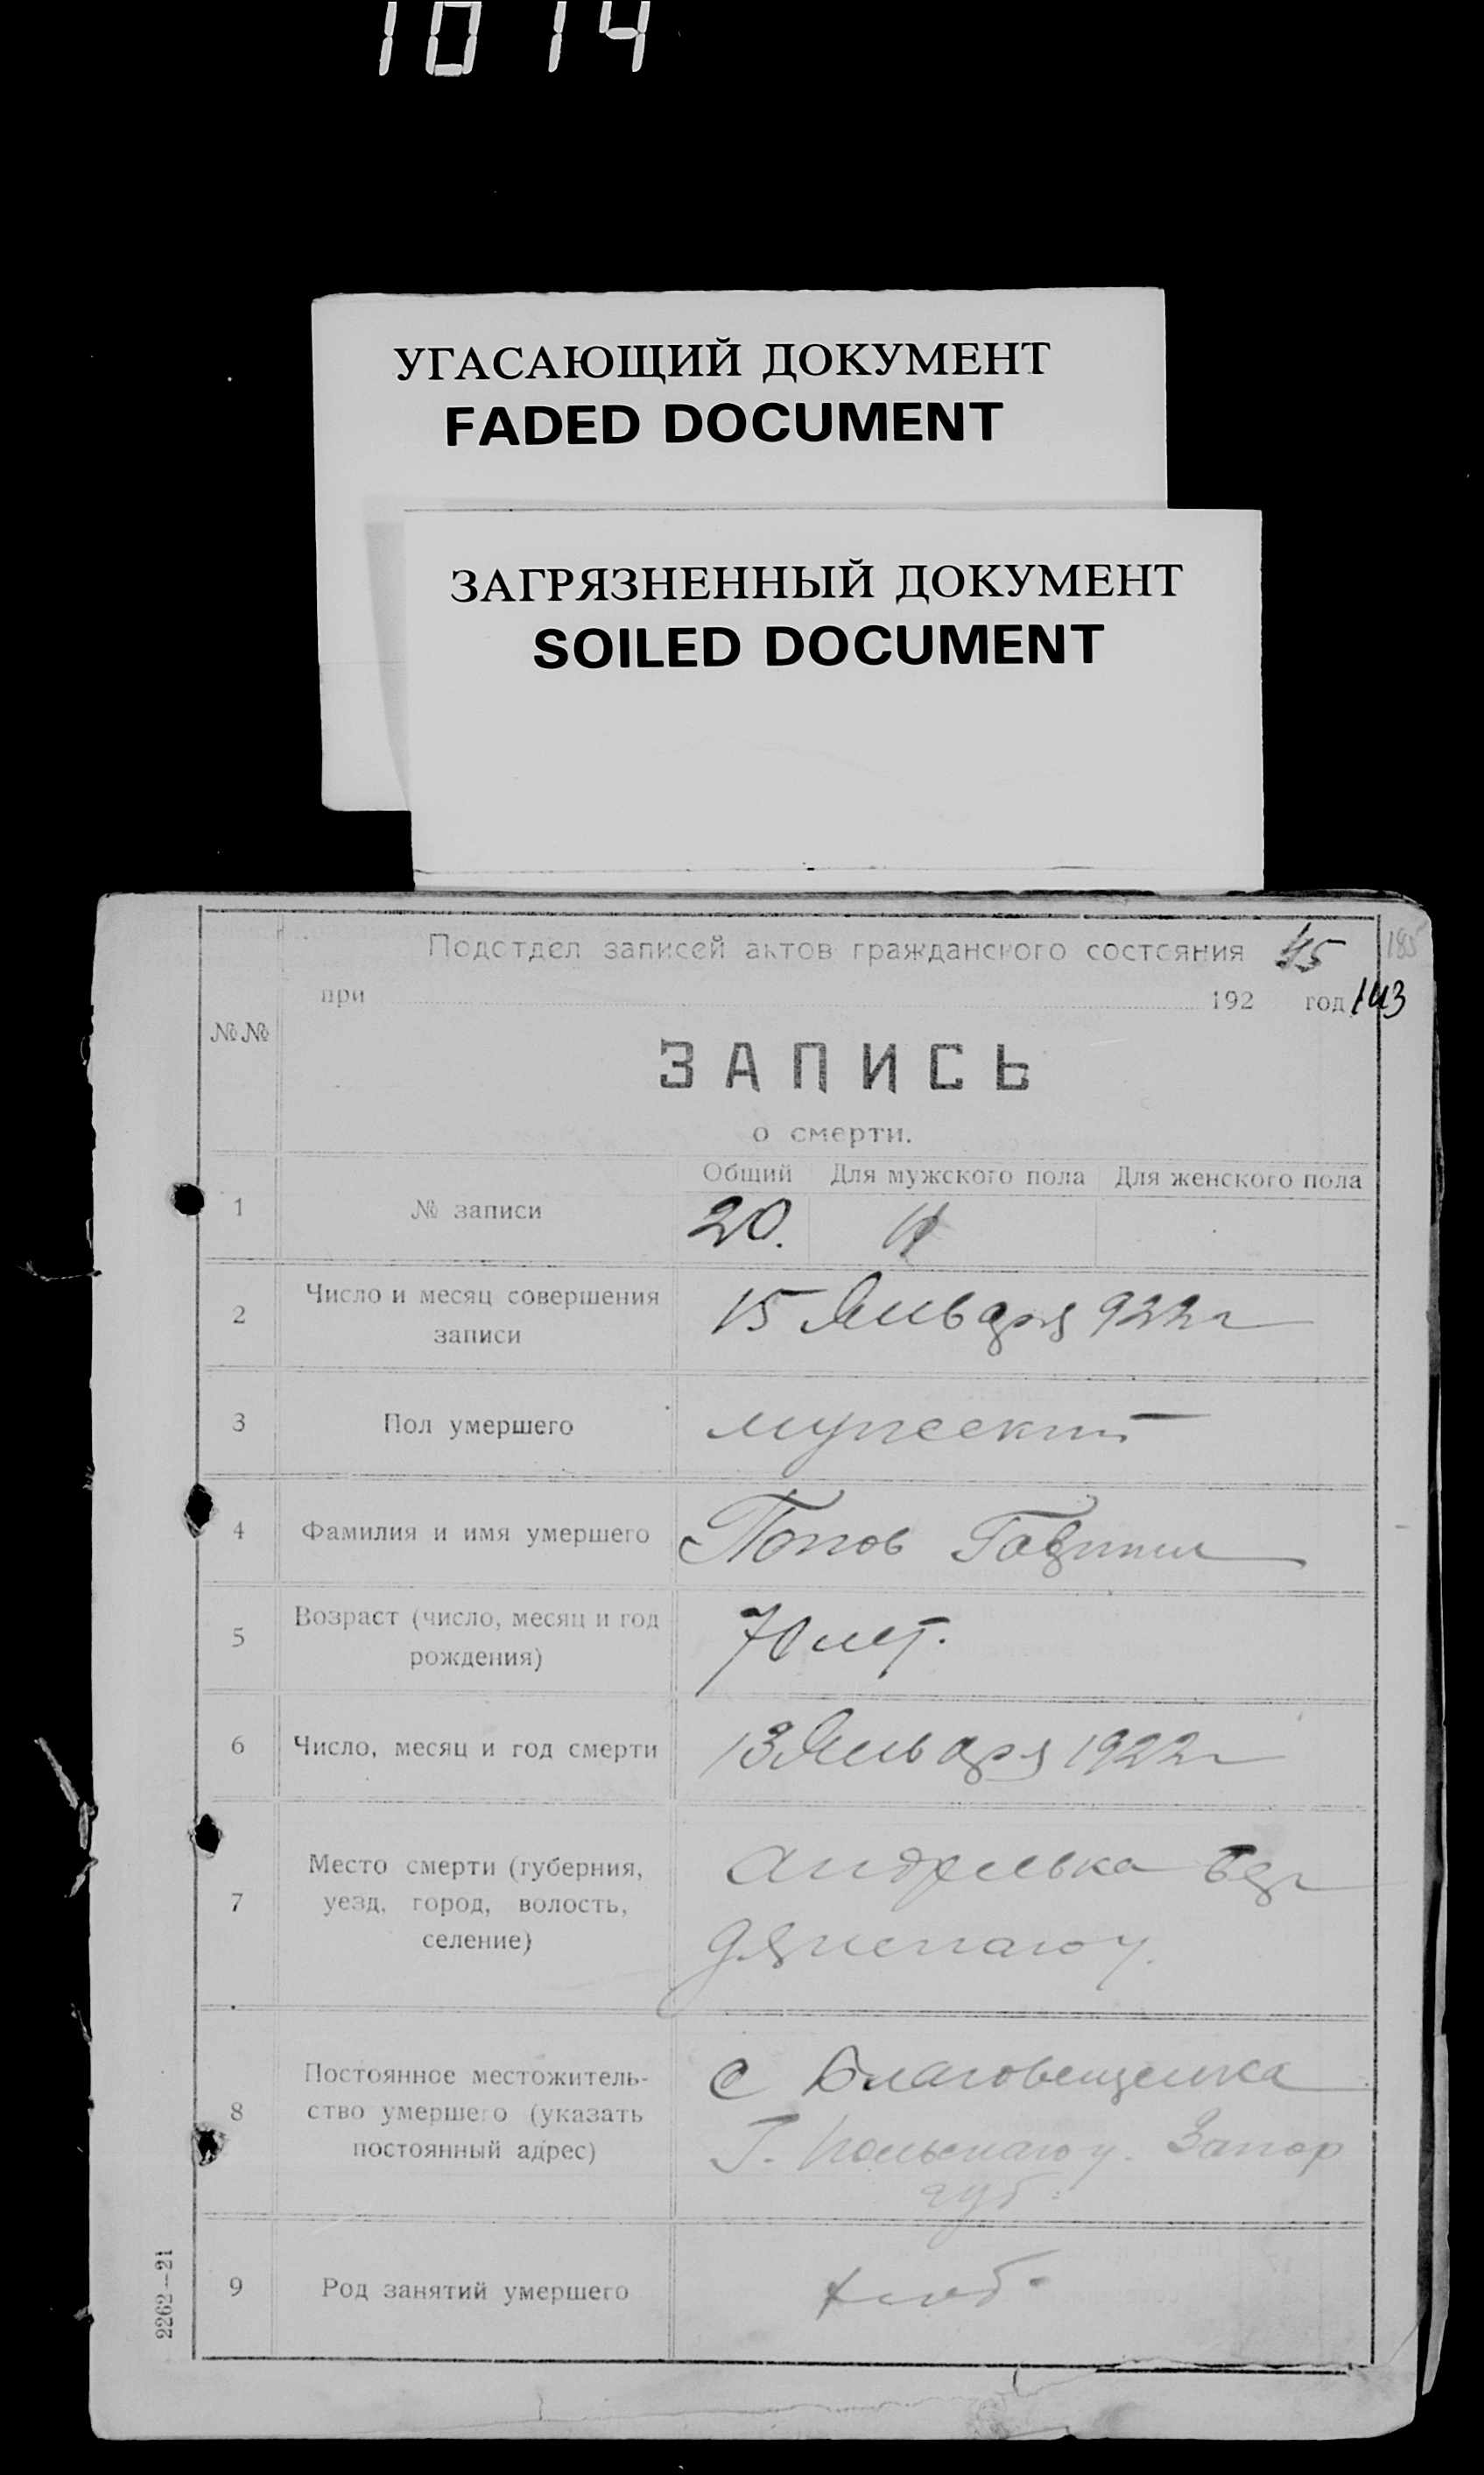 1014
УГАСАЮЩИЙ ДОКУМЕНТ
FADED DOCUMENT
ЗАГРЯЗНЕННЫЙ ДОКУМЕНТ
SOILED DOCUMENT
Подотдел записей актов гражданского состояния 45 185
при 192 год 143
№№
ЗАПИСЬ
о смерти.
Общий Для мужского пола Для женского пола
1 № записи 20.
2 Число и месяц совершения 15 Января 922 г
записи
3 Пол умершего мужеский
4 Фамилия и имя умершего Попов Гавриил
5 Возраст (число, месяц и год 70 лет.
рождения)
6 Число, месяц и год смерти 13 Января 1922 г
7 Место смерти (губерния,
уезд, город, волость,
селение)
8 Постоянное местожитель- с Благовещенка
ство умершего (указать
постоянный адрес) Г. Польскаго у. Запор
губ.
9 Род занятий умершего хлеб-
2262—21